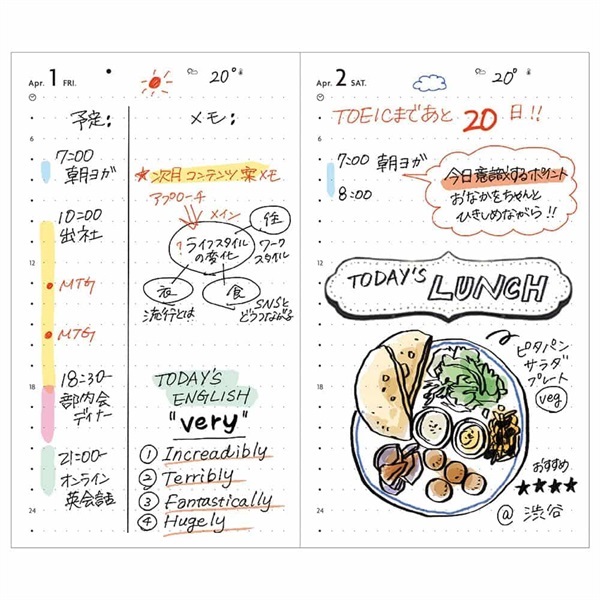 Apr. 1 FRI.
20°
予定: メモ:
6
7:00
朝ヨガ
10:00
出社
12
MTG
MTG
18
18:30-
部内会
ディナー
21:00-
オンライン
英会話
24
★次月コンテンツ案メモ
アプローチ
メイン
?ライフスタイル
の変化
住
ワーク
スタイル
衣
流行とは
食
SNSと
どうつながる
TODAY'S
ENGLISH
"very"
① Increadibly
② Terribly
③ Fantastically
④ Hugely
Apr. 2 SAT.
20°
TOEICまであと 20日!!
6
7:00 朝ヨガ
8:00
今日意識するポイント
おなかをちゃんと
ひきしめながら!!
12
TODAY'S LUNCH
ピタパン
サラダ
プレート
veg
18
おすすめ
★★★★
@ 渋谷
24